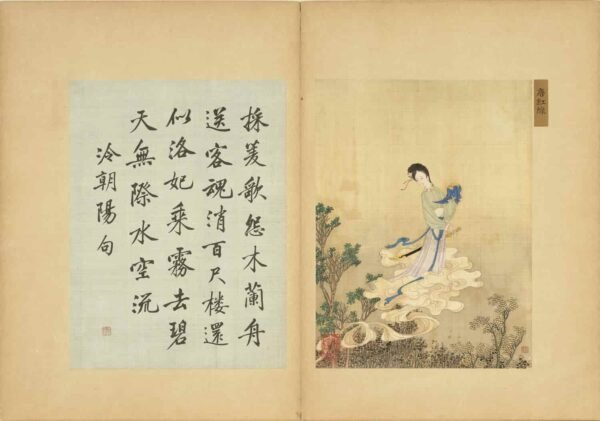 唐紅線
採菱歌怨木蘭舟
送客魂消百尺樓還
似洛妃乘霧去碧
天無際水空流
冷朝陽句